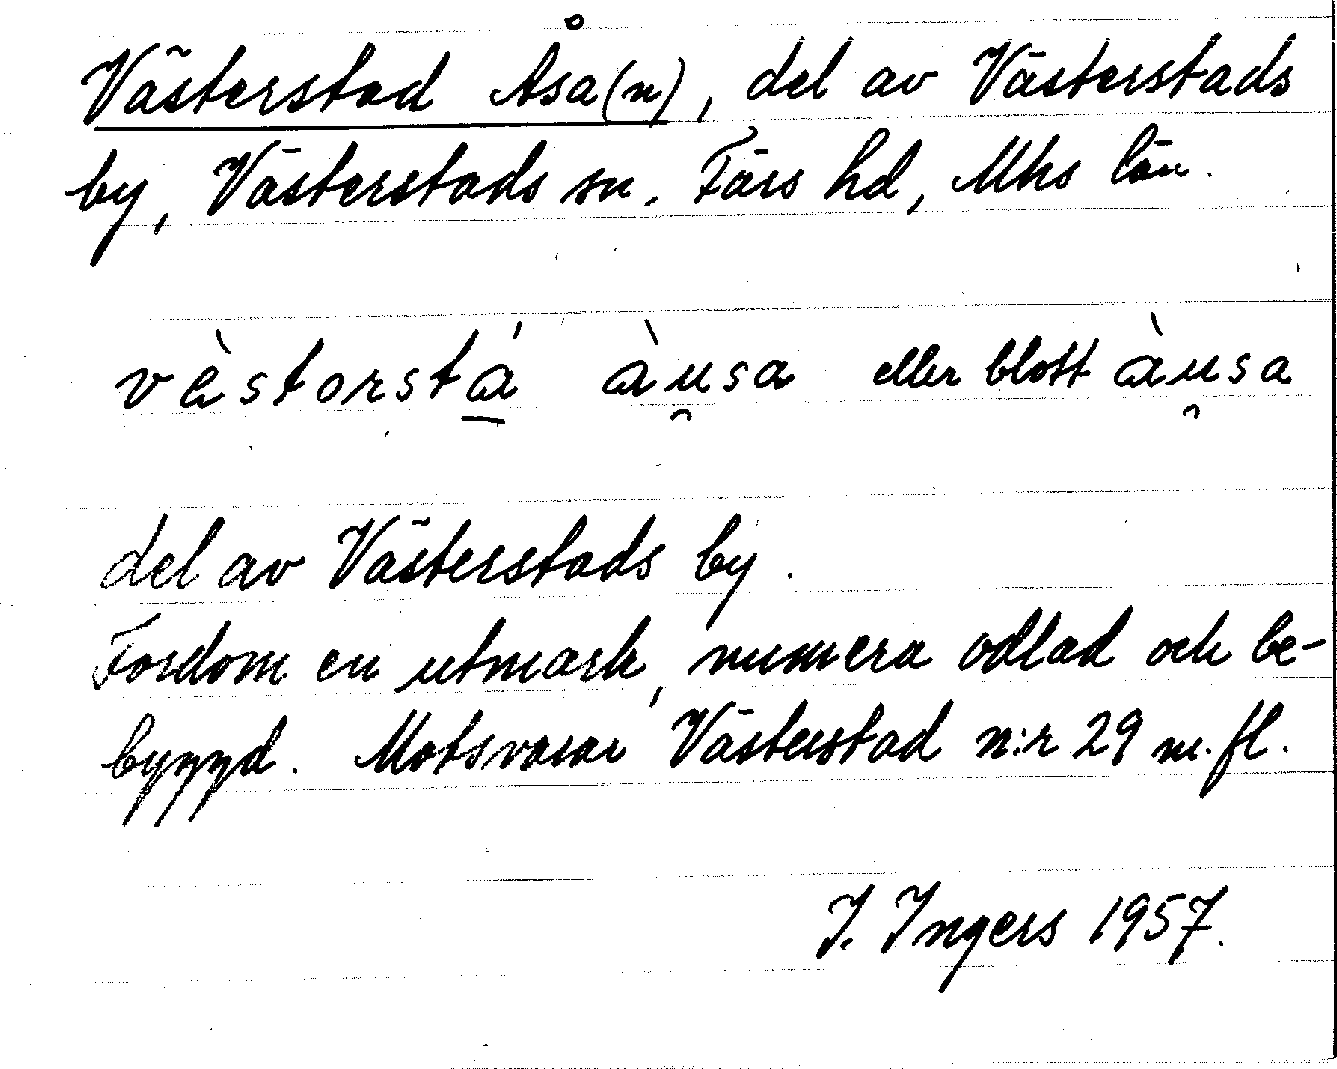 Västerstad Åsa(n), del av Västerstads
by, Västerstads sn. Färs hd, Mhs län.
vèstorstá̱ àu̯sa eller blott àu̯sa
del av Västerstads by.
Fordom en utmark, numera odlad och be-
byggd. Motsvarar Västerstad n:r 29 m.fl.
I. Ingers 1957.